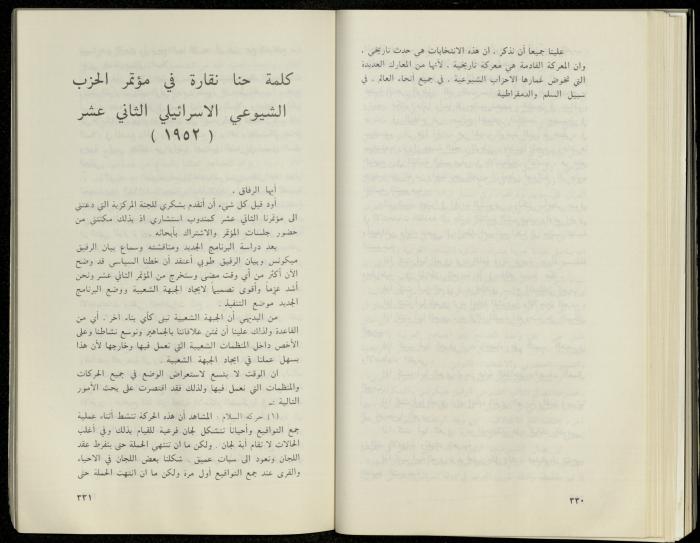 علينا جميعا أن نذكر ، ان هذه الانتخابات هي حدث تاريخي ،
وان المعركة القادمة هي معركة تاريخية ، لأنها من المعارك العديدة
التي تخوض غمارها الاحزاب الشيوعية ، في جميع انحاء العالم ، في
سبيل السلم والدمقراطية
٣٣٠
كلمة حنا نقارة في مؤتمر الحزب
الشيوعي الاسرائيلي الثاني عشر
( ١٩٥٢ )
أيها الرفاق ،
أود قبل كل شيء أن أتقدم بشكري للجنة المركزية التي دعتني
الى مؤتمرنا الثاني عشر كمندوب استشاري اذ بذلك مكنتني من
حضور جلسات المؤتمر والاشتراك بأبحاثه .
بعد دراسة البرنامج الجديد ومناقشته وسماع بيان الرفيق
ميكونس وبيان الرفيق طوبي أعتقد أن خطنا السياسي قد وضح
الآن أكثر من أي وقت مضى وسنخرج من المؤتمر الثاني عشر ونحن
أشد عزماً وأقوى تصميماً لايجاد الجبهة الشعبية ووضع البرنامج
الجديد موضع التنفيذ .
من البديهي أن الجبهة الشعبية تبنى كأي بناء اخر . أي من
القاعدة ولذلك علينا أن نمتن علاقاتنا بالجماهير ونوسع نشاطنا وعلى
الأخص داخل المنظمات الشعبية التي نعمل فيها وخارجها لأن هذا
يسهل عملنا في ايجاد الجبهة الشعبية .
ان الوقت لا يتسع لاستعراض الوضع في جميع الحركات
والمنظمات التي نعمل فيها ولذلك فقد اقتصرت على بحث الأمور
التالية :ـ
(١) حركة السلام . المشاهد أن هذه الحركة تنشط أثناء عملية
جمع التواقيع وأحيانا تتشكل لجان فرعية للقيام بذلك وفي أغلب
الحالات لا تقام أية لجان . ولكن ما ان تنتهي الحملة حتى ينفرط عقد
اللجان ونعود الى سبات عميق . شكلنا بعض اللجان في الاحياء
والقرى عند جمع التواقيع أول مرة ولكن ما ان انتهت الحملة حتى
٣٣١